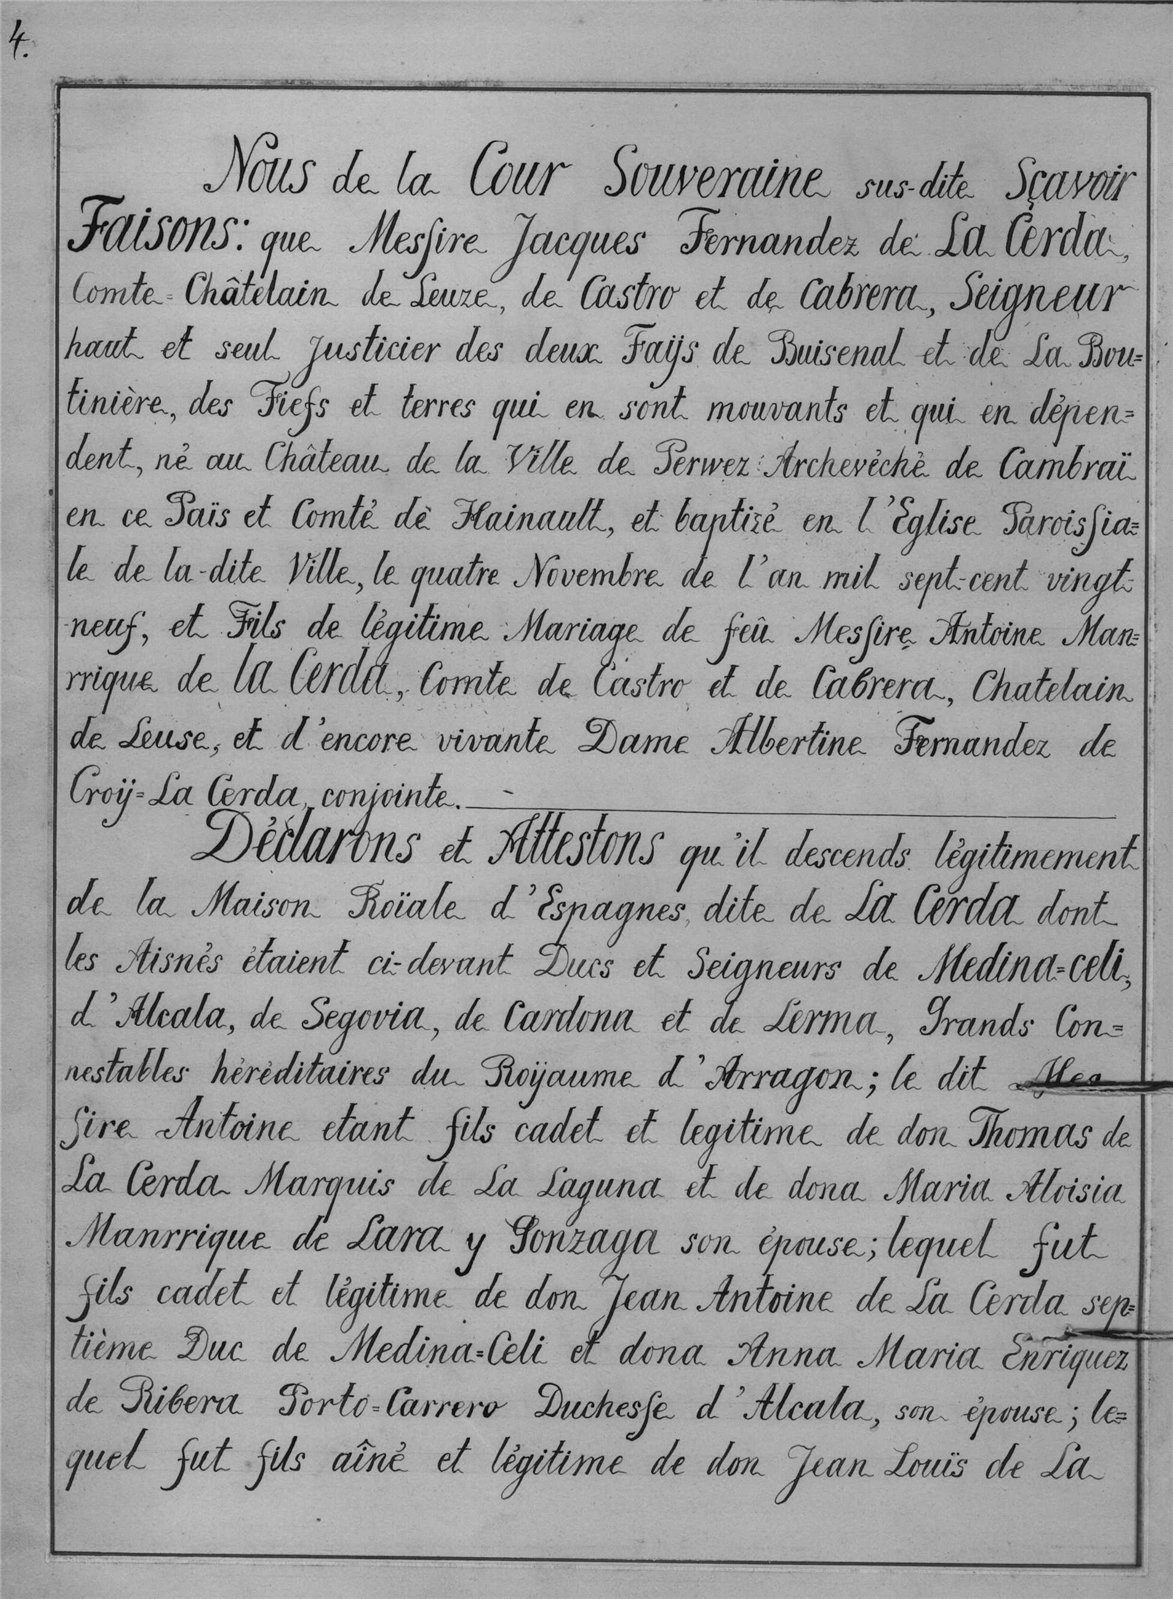 4.
Nous de la Cour Souveraine sus-dite Sçavoir
Faisons: que Messire Jacques Fernandez de La Cerda,
Comte=Châtelain de Leuze, de Castro et de Cabrera, Seigneur
haut et seul Justicier des deux Faÿs de Buisenal et de La Bou=
tinière, des Fiefs et terres qui en sont mouvants et qui en dépen=
dent, né au Château de la Ville de Perwez Archevêché de Cambraï
en ce Païs et Comté de Hainault, et baptizé en l'Eglise Paroissia=
le de la-dite Ville, le quatre Novembre de l'an mil sept-cent vingt-
neuf, et Fils de légitime Mariage de feû Messire Antoine Man=
rrique de la Cerda, Comte de Castro et de Cabrera, Chatelain
de Leuse, et d'encore vivante Dame Albertine Fernandez de
Croÿ=La Cerda, conjointe.
Déclarons et Attestons qu'il descends légitimement
de la Maison Roïale d'Espagnes dite de La Cerda dont
les Aisnés étaient ci-devant Ducs et Seigneurs de Medina=celi,
d'Alcala, de Segovia, de Cardona et de Lerma, Grands Con=
nestables héréditaires du Roÿaume d'Arragon; le dit Mes
sire Antoine etant fils cadet et legitime de don Thomas de
La Cerda Marquis de La Laguna et de dona Maria Aloisia
Manrrique de Lara y Gonzaga son épouse; lequel fut
fils cadet et légitime de don Jean Antoine de La Cerda sep=
tième Duc de Medina=Celi et dona Anna Maria Enriquez
de Ribera Porto=Carrero Duchesse d'Alcala, son épouse; le=
quel fut fils aîné et légitime de don Jean Louïs de La